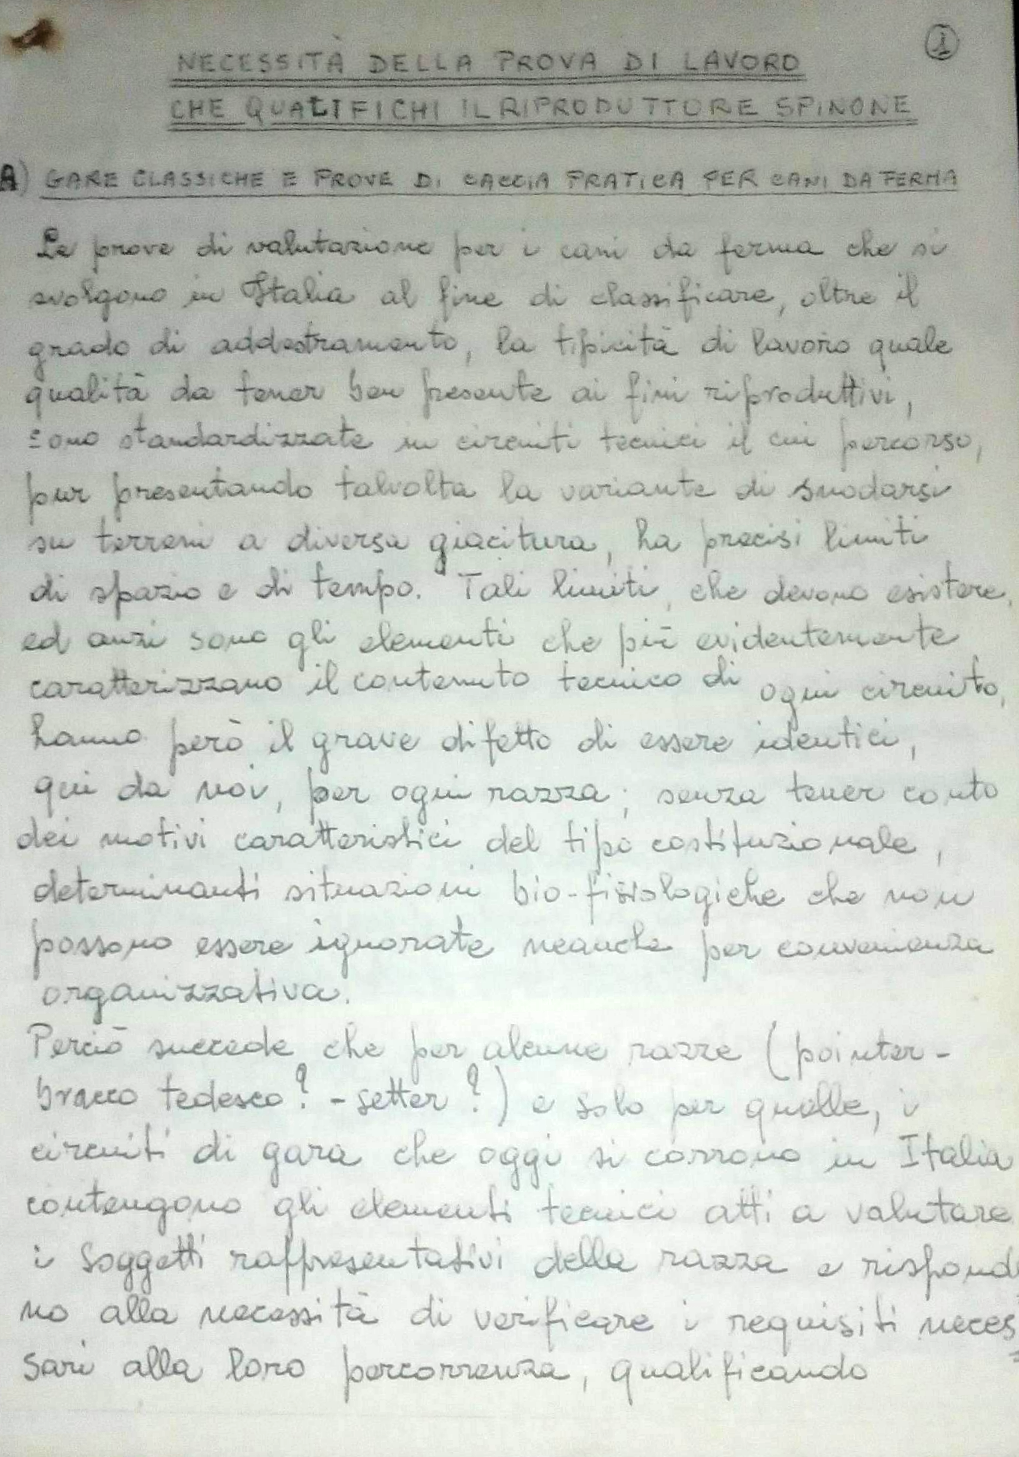 1
NECESSITÀ DELLA PROVA DI LAVORO
CHE QUALIFICHI IL RIPRODUTTORE SPINONE
A) GARE CLASSICHE E PROVE DI CACCIA PRATICA PER CANI DA FERMA
Le prove di valutazione per i cani da ferma che si
svolgono in Italia al fine di classificare, oltre il
grado di addestramento, la tipicità di lavoro quale
qualità da tener ben presente ai fini riproduttivi,
sono standardizzate in circuiti tecnici il cui percorso,
pur presentando talvolta la variante di snodarsi
su terreni a diversa giacitura, ha precisi limiti
di spazio e di tempo. Tali limiti, che devono esistere,
ed anzi sono gli elementi che più evidentemente
caratterizzano il contenuto tecnico di ogni circuito,
hanno però il grave difetto di essere identici,
qui da noi, per ogni razza; senza tener conto
dei motivi caratteristici del tipo costituzionale,
determinanti situazioni bio-fisiologiche che non
possono essere ignorate neanche per convenienza
organizzativa.
Perciò succede che per alcune razze (pointer-
bracco tedesco? - setter?) e solo per quelle, i
circuiti di gara che oggi si corrono in Italia
contengono gli elementi tecnici atti a valutare
i soggetti rappresentativi della razza e rispond
no alla necessità di verificare i requisiti neces
sari alla loro percorrenza, qualificando